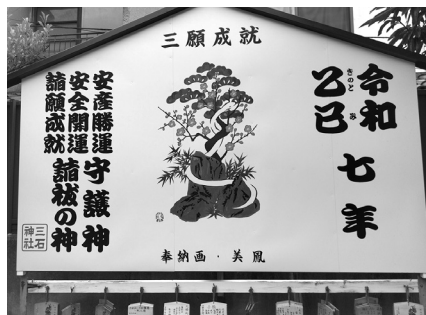 三願成就
令和七年
乙巳
きのと
み
安産勝運 守護神
安全開運
諸願成就 諸祓の神
三石
神社
奉納画・美鳳